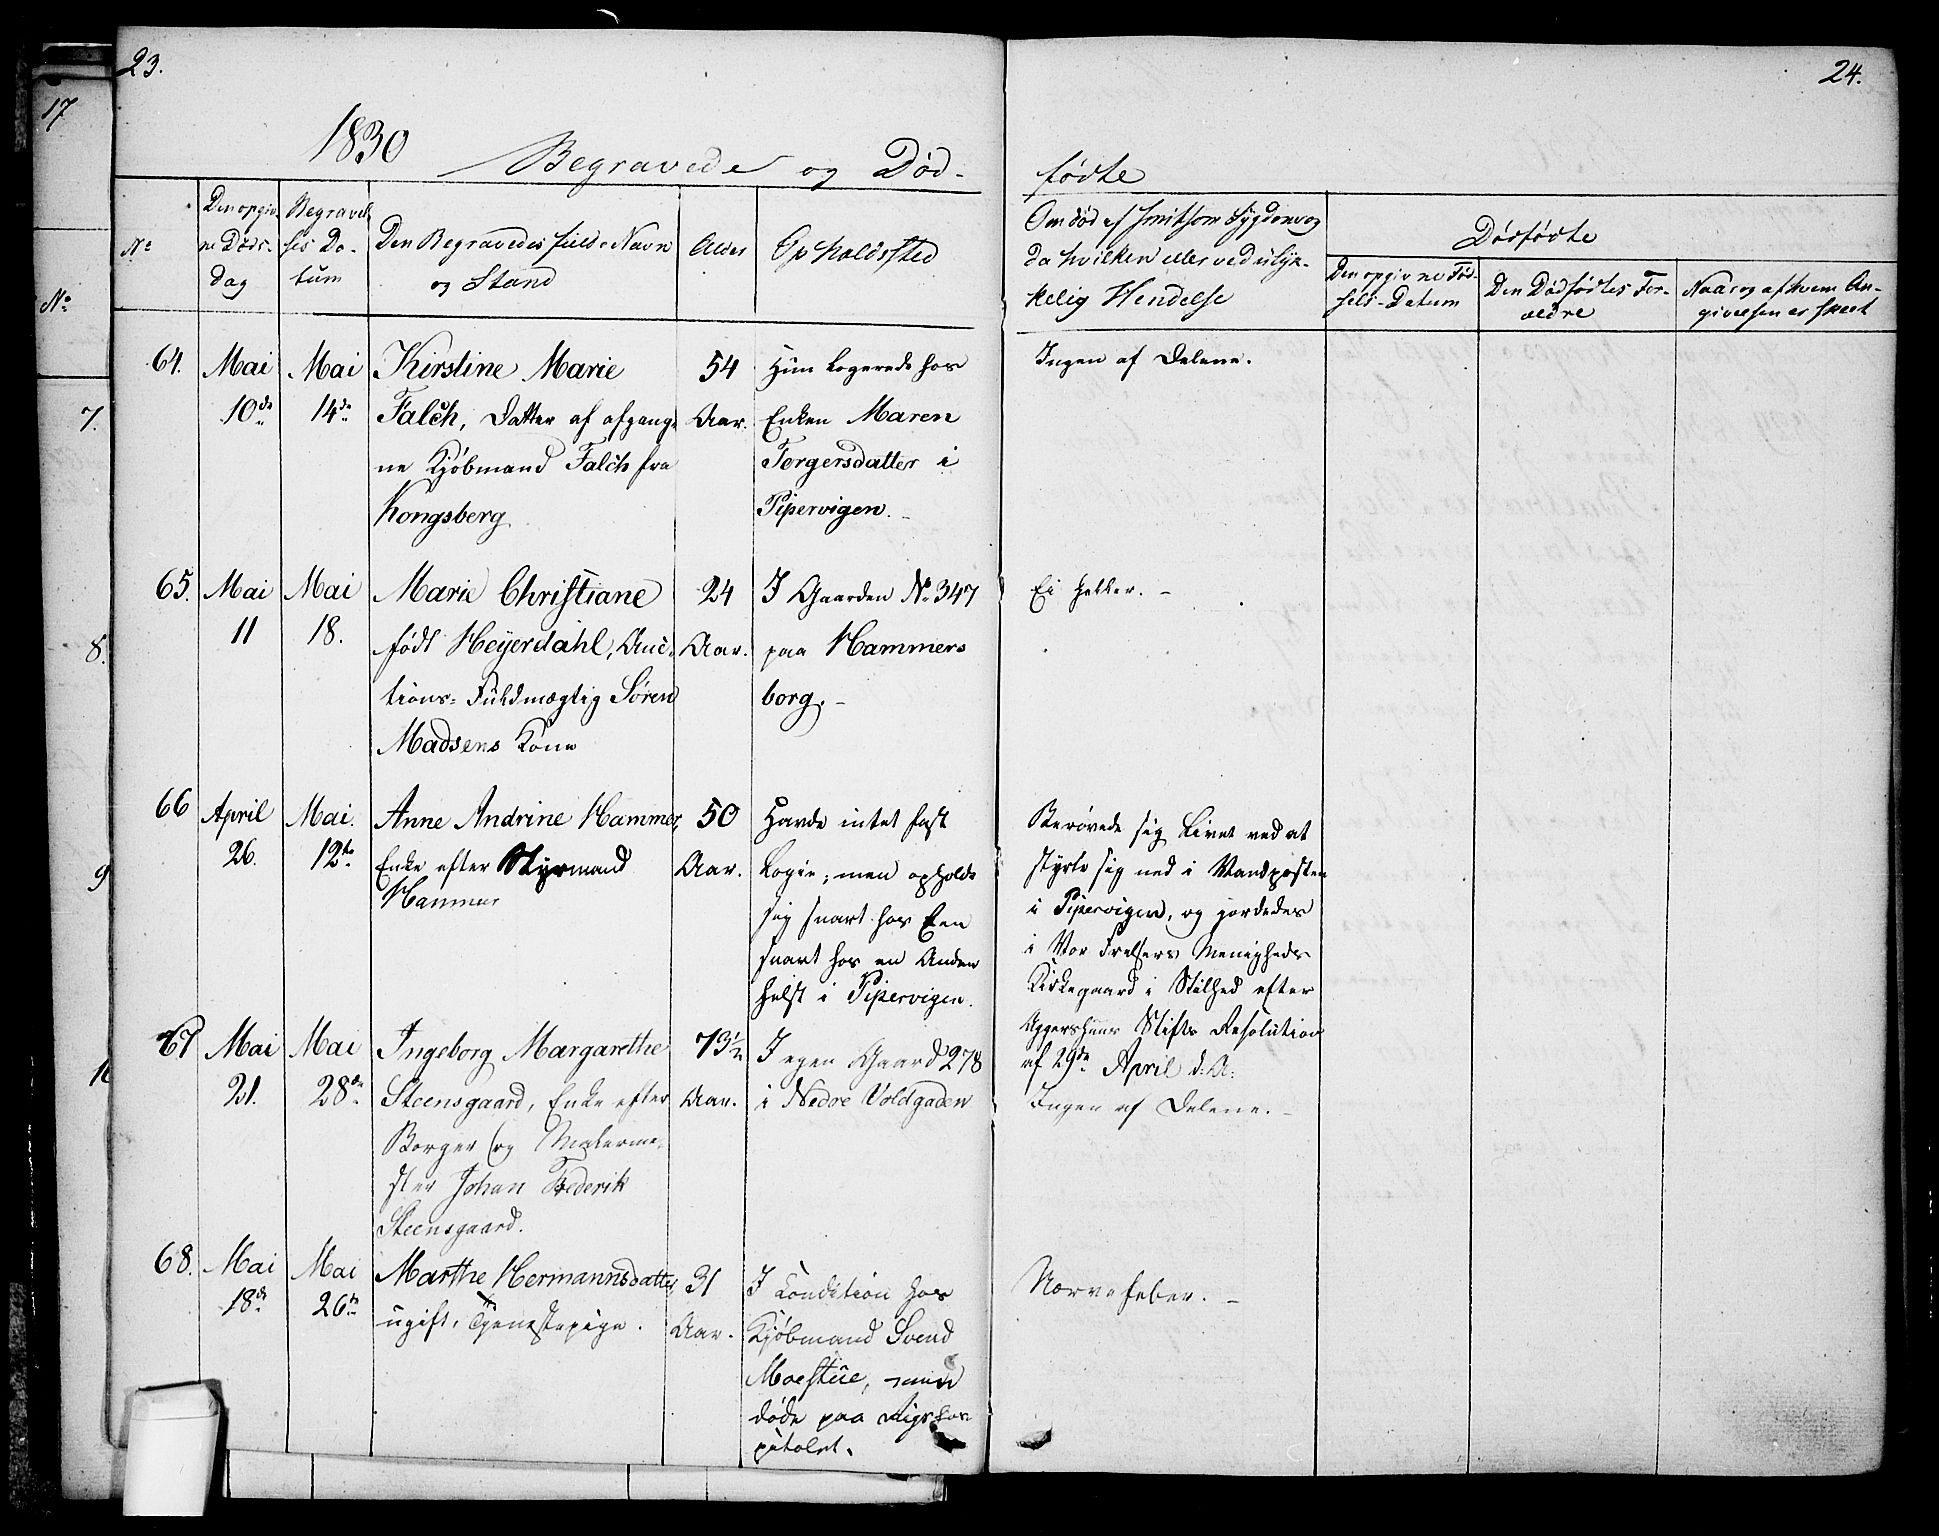 23.
24.
17
1830
Begravede og Død-
fødte
No
Den opgiv-
ne Døds-
dag
Begravel-
ses Da-
tum
Den Begravedes fulde Navn
og Stand
Alder
Opholdssted
Om død af smitsom Sygdom og
da hvilken eller ved ulyk-
kelig Hendelse
Dødfødte
Den opgivne Fød-
sels-Datum
Den Dødfødtes For-
ældre
Naar og af hvem An-
givelsen er skeet
No
7.
8.
9
64.
Mai
10de
Mai
14de
Kirstine Marie
Falch, Datter af afgang-
ne Kjøbmand Falch fra
Kongsberg
54
Aar.
Hun logerede hos
Enken Maren
Torgersdatter i
Pipervigen.
Ingen af Delene.
65.
Mai
11
Mai
18.
Marie Christiane
født Heyerdahl, Auc-
tions-Fuldmægtig Søren
Madsens Kone
24
Aar.
I Gaarden No 347
paa Hammers
borg.
Ei heller.
66
April
26.
Mai.
12te
Anne Andrine Hammer,
Enke efter Styrmand
Hammer
50
Aar.
Havde intet fast
Logie; men opholdt
sig snart hos Een
snart hos en Anden
helst i Pipervigen.
Berøvede sig Livet ved at
styrte sig ned i Vandposten
i Pipervigen, og jordedes
i Vor Frelsers Menigheds
Kirkegaard i Stilhed efter
Aggershuus Stifts Resolution
af 29de April d. A.
67
Mai
21.
Mai
28de
Ingeborg Margarethe
Steensgaard, Enke efter
Borger og Malerme-
ster Johan Frederik
Steensgaard.
73½
Aar.
I egen Gaard 278
i Nedre Voldgaden
Ingen af Delene.
68.
Mai
18de
Mai
26te
Marthe Hermannsdatter,
ugift, Tjenestepige.
31
Aar.
I Condition hos
Kjøbmand Svend
Moestue, men
døde paa Rigshos-
pitalet.
Nervefeber.